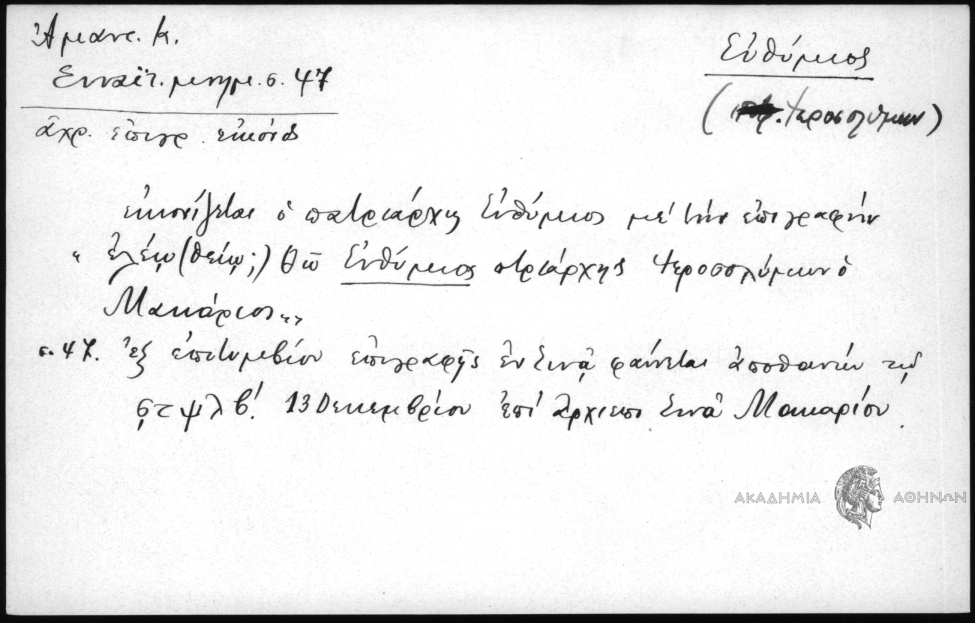 Ἀμαντ. Κ.
Σιναϊτ. μνημ. σ. 47
ἀχρ. ἐπιγρ. εἰκόνος
Εὐθύμιος
(Ἱεροσολύμων)
εἰκονίζεται ὁ πατριάρχης Εὐθύμιος μὲ τὴν ἐπιγραφὴν
" ἐλέῳ (θείῳ;) Θῦ Εὐθύμιος πτριάρχης Ἱεροσολύμων ὁ
Μακάριος"
σ. 47. Ἐξ ἐπιτυμβίου ἐπιγραφῆς ἐν Σινᾷ φαίνεται ἀποθανὼν τῷ
ϛψλβ΄. 13 Δεκεμβρίου ἐπὶ ἀρχιεπ Σινᾶ Μακαρίου.
ΑΚΑΔΗΜΙΑ ΑΘΗΝΩΝ